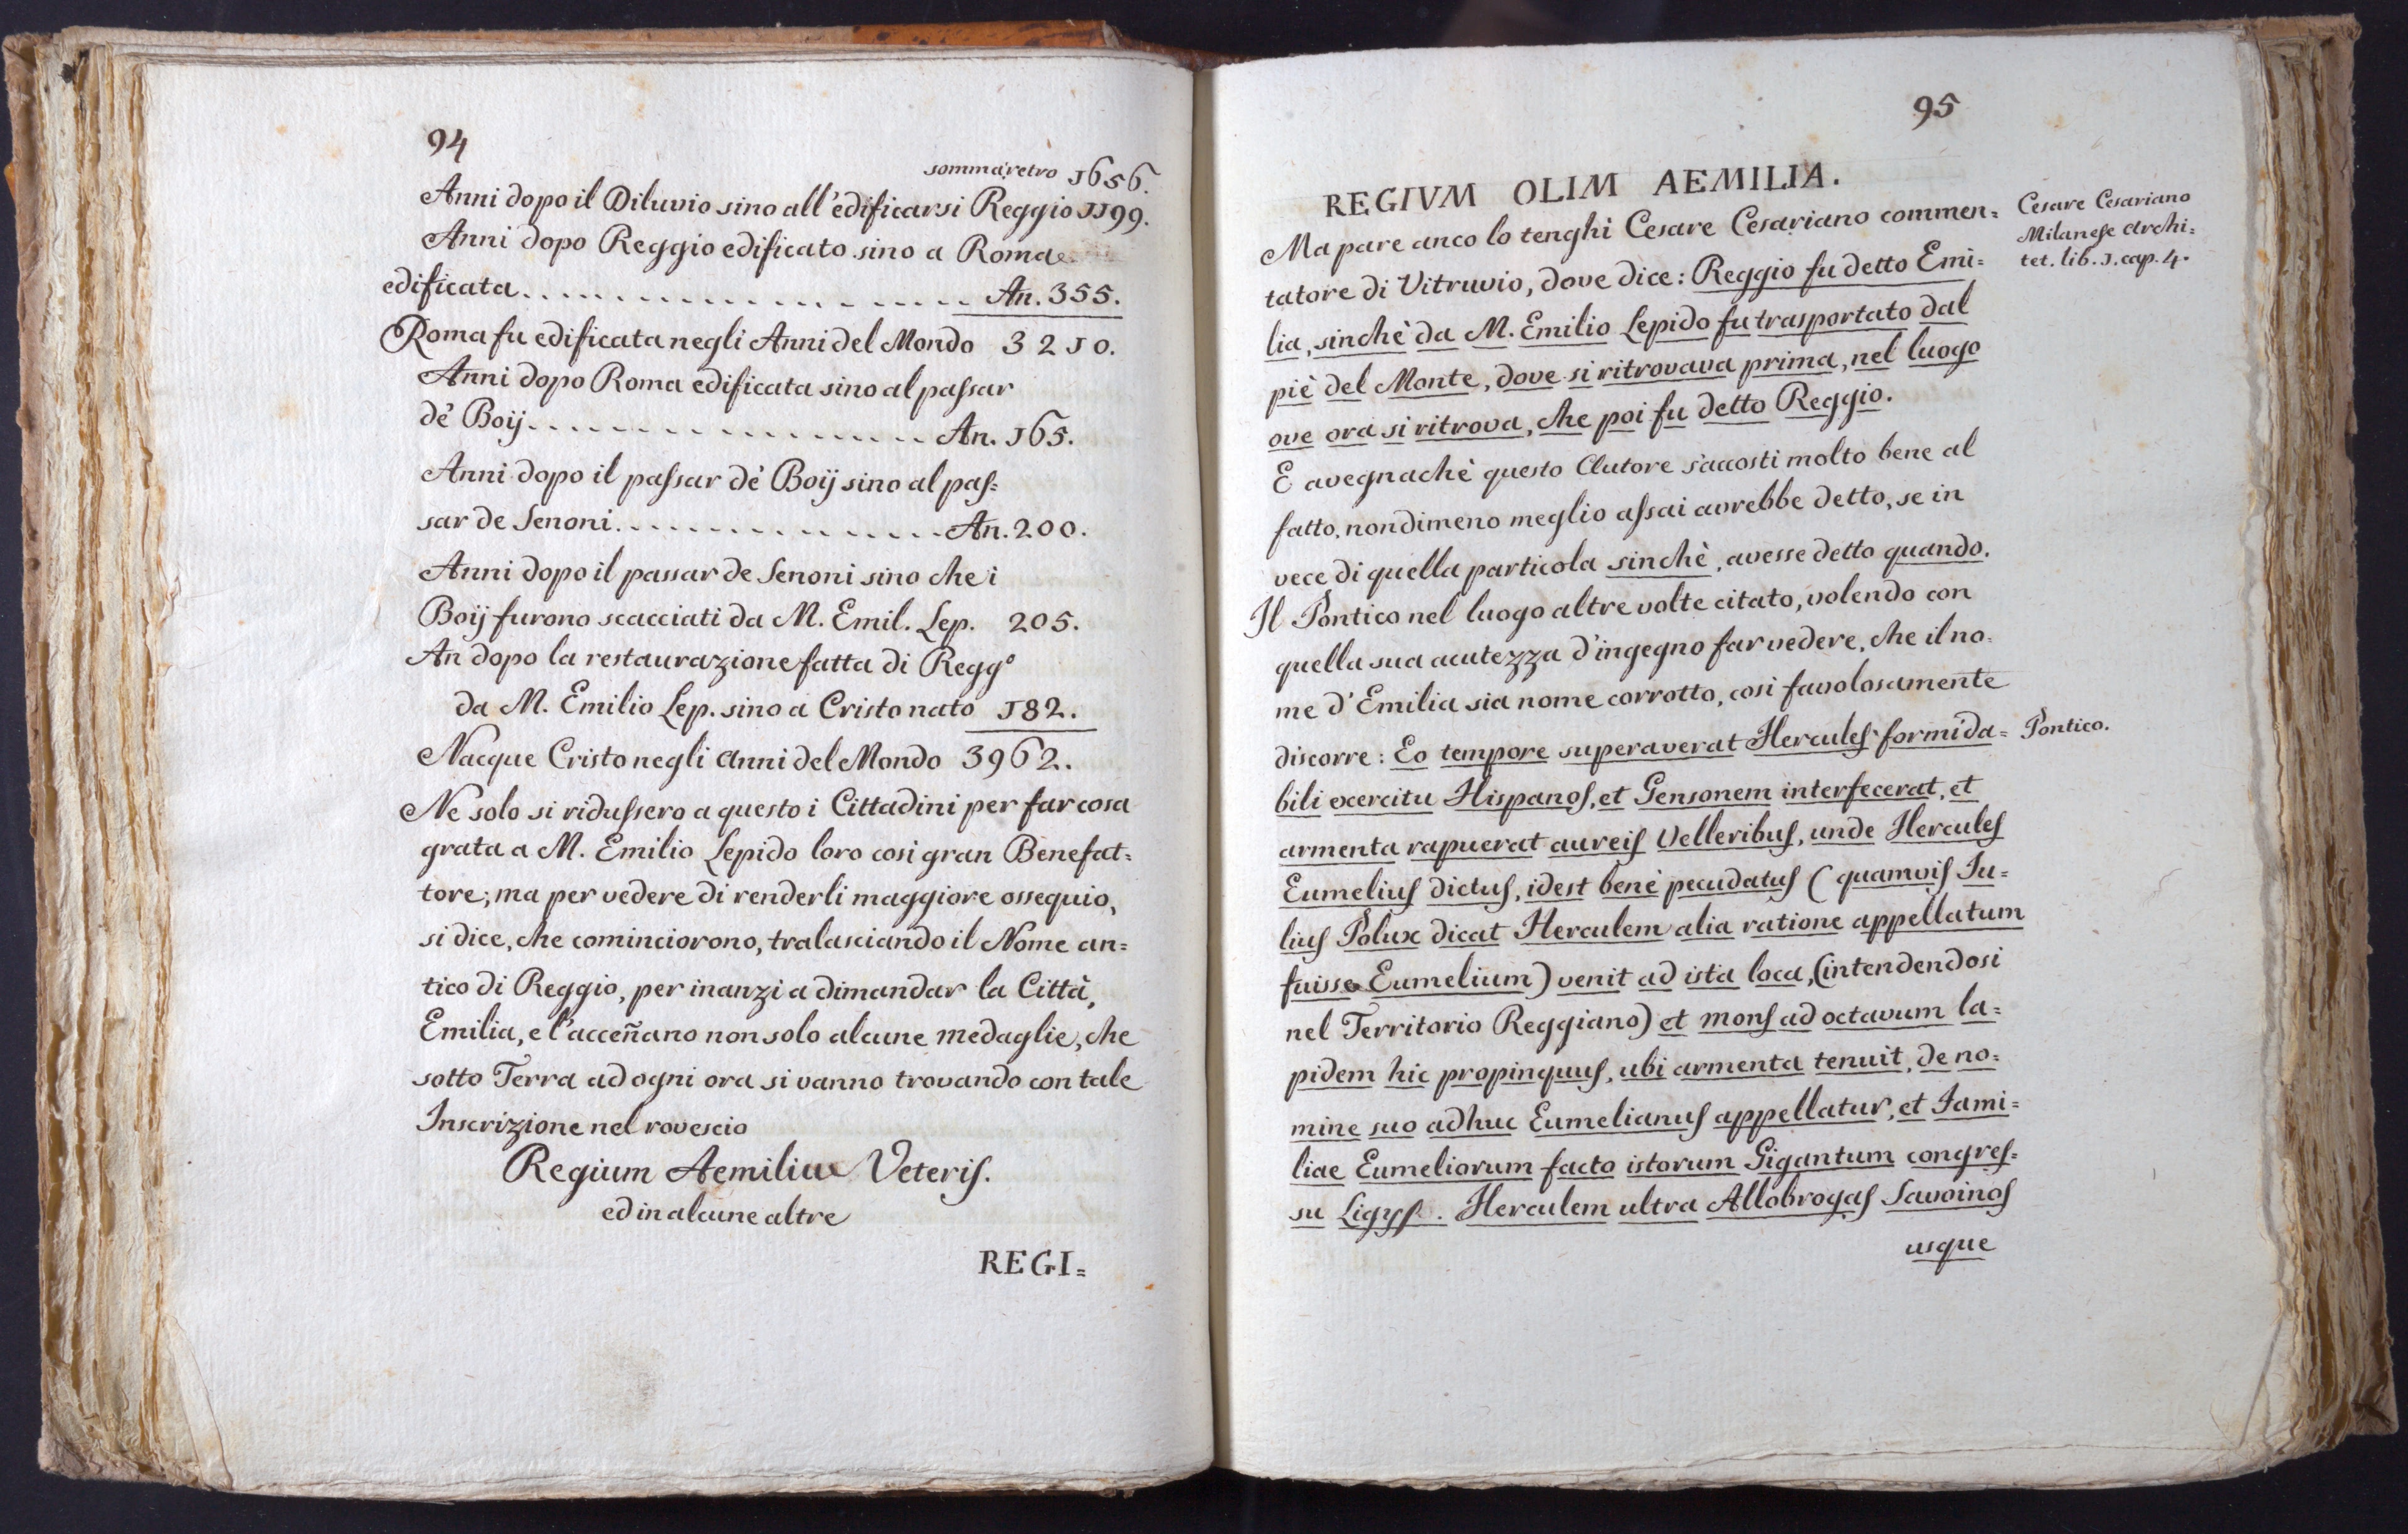 94
somma retro 1656.
Anni dopo il Diluvio sino all'edificarsi Reggio 1199.
Anni dopo Reggio edificato sino a Roma
edificata . . . . . . . . . . . . . . . . . An. 355.
Roma fu edificata negli Anni del Mondo 3210.
Anni dopo Roma edificata sino al paſsar
de' Boij . . . . . . . . . . . . . . . . An. 165.
Anni dopo il paſsar de' Boij sino al paſ=
sar de Senoni . . . . . . . . . . . . . An. 200.
Anni dopo il passar de Senoni sino che i
Boij furono scacciati da M. Emil. Lep. 205.
An dopo la restaurazione fatta di Reggº
da M. Emilio Lep. sino a Cristo nato 182.
Nacque Cristo negli Anni del Mondo 3962.
Ne solo si riduſsero a questo i Cittadini per far cosa
grata a M. Emilio Lepido loro cosi gran Benefat=
tore; ma per vedere di renderli maggiore ossequio,
si dice, che cominciorono, tralasciando il Nome an=
tico di Reggio, per inanzi a dimandar la Città,
Emilia, e l'acceñano non solo alcune medaglie, che
sotto Terra ad ogni ora si vanno trovando con tale
Inscrizione nel rovescio
Regium Aemiliae Veteris.
ed in alcune altre
REGI=
95
REGIVM OLIM AEMILIA.
Ma pare anco lo tenghi Cesare Cesariano commen=
tatore di Vitruvio, dove dice: Reggio fu detto Emi=
lia, sinchè da M. Emilio Lepido fu trasportato dal
piè del Monte, dove si ritrovava prima, nel luogo
ove ora si ritrova, che poi fu detto Reggio.
E avegnachè questo Autore s'accosti molto bene al
fatto, nondimeno meglio aſsai avrebbe detto, se in
vece di quella particola sinchè, avesse detto quando.
Il Pontico nel luogo altre volte citato, volendo con
quella sua acutezza d'ingegno far vedere, che il no=
me d'Emilia sia nome corrotto, cosi favolosamente
discorre: Eo tempore superaverat Hercules formida=
bili exercitu Hispanos, et Gensonem interfecerat, et
armenta rapuerat aureis Velleribus, unde Hercules
Eumelius dictus, idest benè pecudatus (quamvis Iu=
lius Polux dicat Herculem alia ratione appellatum
fuisse Eumelium) venit ad ista loca, (intendendosi
nel Territorio Reggiano) et mons ad octavum la=
pidem hic propinquus, ubi armenta tenuit, de no=
mine suo adhuc Eumelianus appellatur, et Fami=
liae Eumeliorum facto istorum Gigantum congreſ=
su . Herculem ultra Allobrogas Savoinos
usque
Cesare Cesariano
Milanese Archi=
tet. lib. 1. cap. 4.
Pontico.